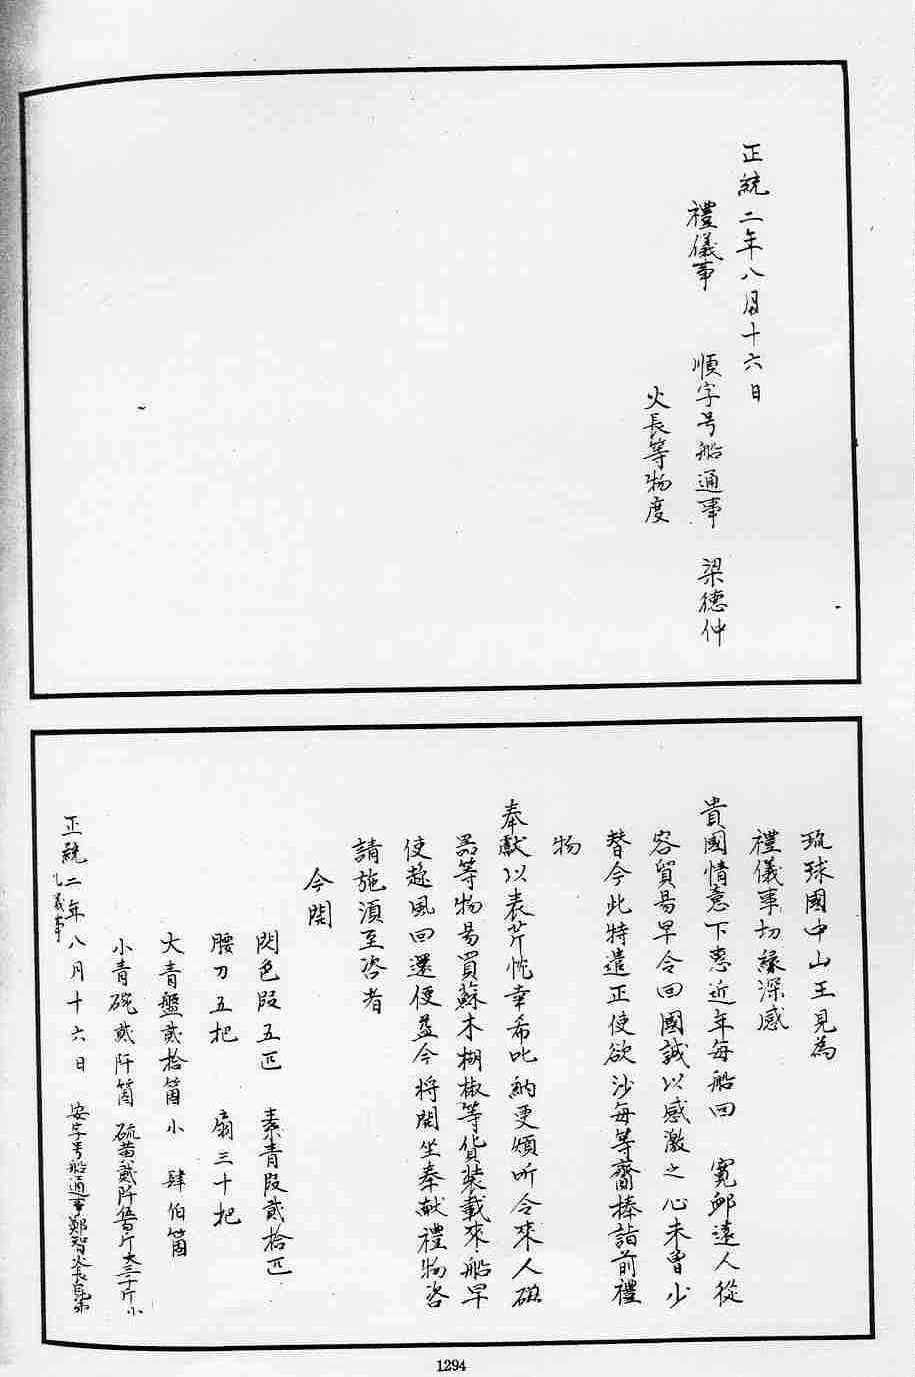 正統二年八月十六日
禮儀事　順字号船通事　梁德仲
火長等物度
琉球國中山王見為
禮儀事切緣深感
貴國情意下惠近年每船回　寬邮遠人從
容貿易早令回國誠以感激之心未曾少
替今此特遣正使欲沙每等齎捧詣前禮
物
奉獻以表芹忱幸希叱納更煩听令來人磁
器等物易買蘇木椒等貨装載來船早
使趂風回還便益今將開坐奉献禮物咨
請施湏至咨者
今開
閃色段五匹　素青段貳拾匹
腰刀五把　扇三十把
大青盤貳拾箇　小　肆伯箇
小青碗貳阡箇　硫黄貳阡伍百斤大三千斤小
正統二年八月十六日　安字号船通事鄭智火長
儀事
1294